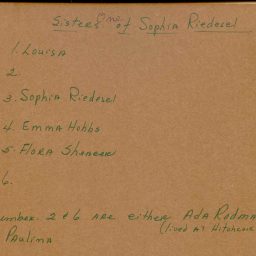 Sisters of Sophia Riedesel
1. Louisa
2.
3. Sophia Riedesel
4. Emma Hobbs
5. Flora
6.
umber 2 & 6 are either Ada Rodman
(lived at Hitchcock
Paulina